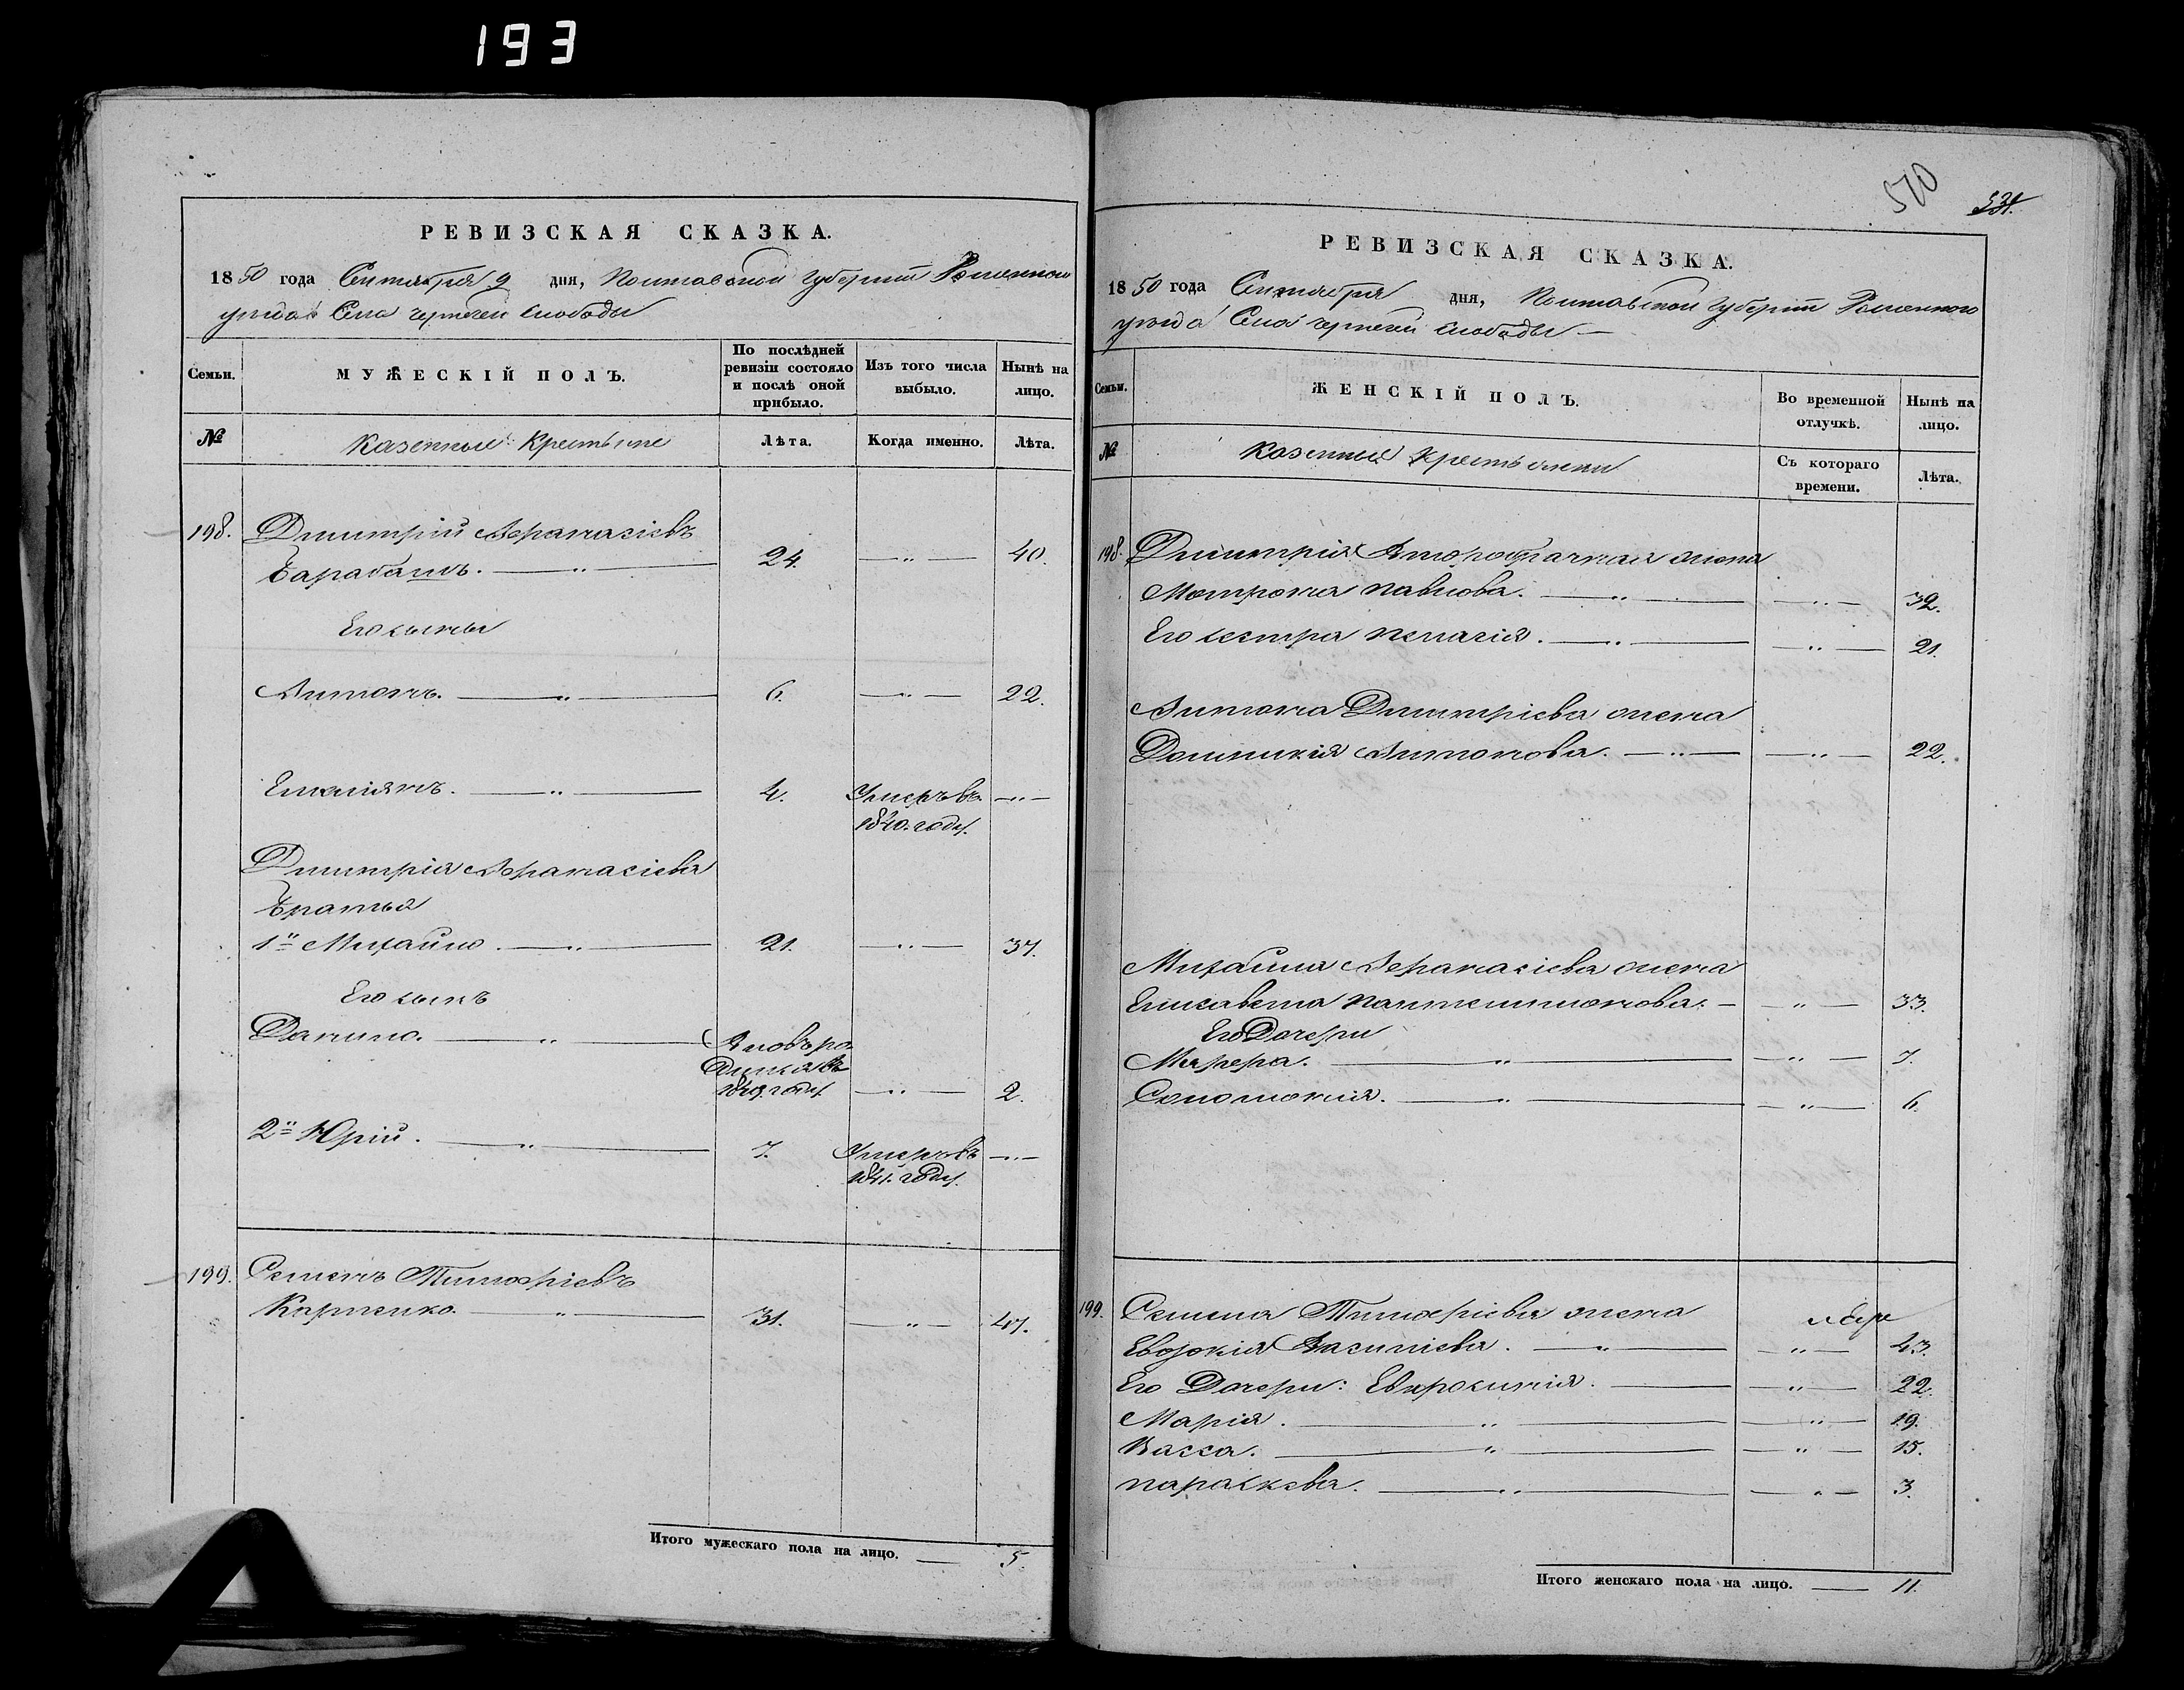 193
РЕВИЗСКАЯ СКАЗКА.
1850 года Сентября 9 дня, Полтавской Губерніи Роменского
уезда Села чернечей слободы
Семьи.
МУЖЕСКІЙ ПОЛЪ.
По послѣдней ревизіи состояло и послѣ оной прибыло.
Изъ того числа выбыло.
Нынѣ на лицо.
№
Казенные Крестьяне
Лѣта.
Когда именно.
Лѣта.
198. Димитрій Афанасіевъ
Барабашъ. 24. 40.
Его сыны
Антонъ. 6. 22.
Емеліянъ. 4. Умеръ въ
1840. году.
Димитрія Афанасіева
Братья
1й Михайло. 21. 37.
Его сынъ
Данило. вновь ро-
дился въ
1849. году. 2.
2й Юрій. 7. Умеръ въ
1841. году.
199. Семенъ Тимофіевъ
Карпенко. 31. 47.
Итого мужескаго пола на лицо. 5.
510
531.
РЕВИЗСКАЯ СКАЗКА.
1850 года Сентября дня, Полтавской Губерніи Роменского
уезда Села чернечей слободы
Семьи.
ЖЕНСКІЙ ПОЛЪ.
Во временной отлучкѣ.
Нынѣ на лицо.
№
Казенные крестьянки
Съ котораго времени.
Лѣта.
198. Димитрія второбрачная жена
Мотрона Павлова. 32.
Его сестра Пелагія. 21.
Антона Димитріева жена
Домникія Антонова. 22.
Михайла Афанасіева жена
Елисавета Пантелимонова. 33.
Его Дочери
Марфа. 7.
Соломонія. 6.
199. Семена Тимофіева жена
Евдокія Василіева. 43.
Его Дочери: Евфросинія. 22.
Марія. 19.
Васса. 15.
параскева. 3.
Итого женскаго пола на лицо. 11.